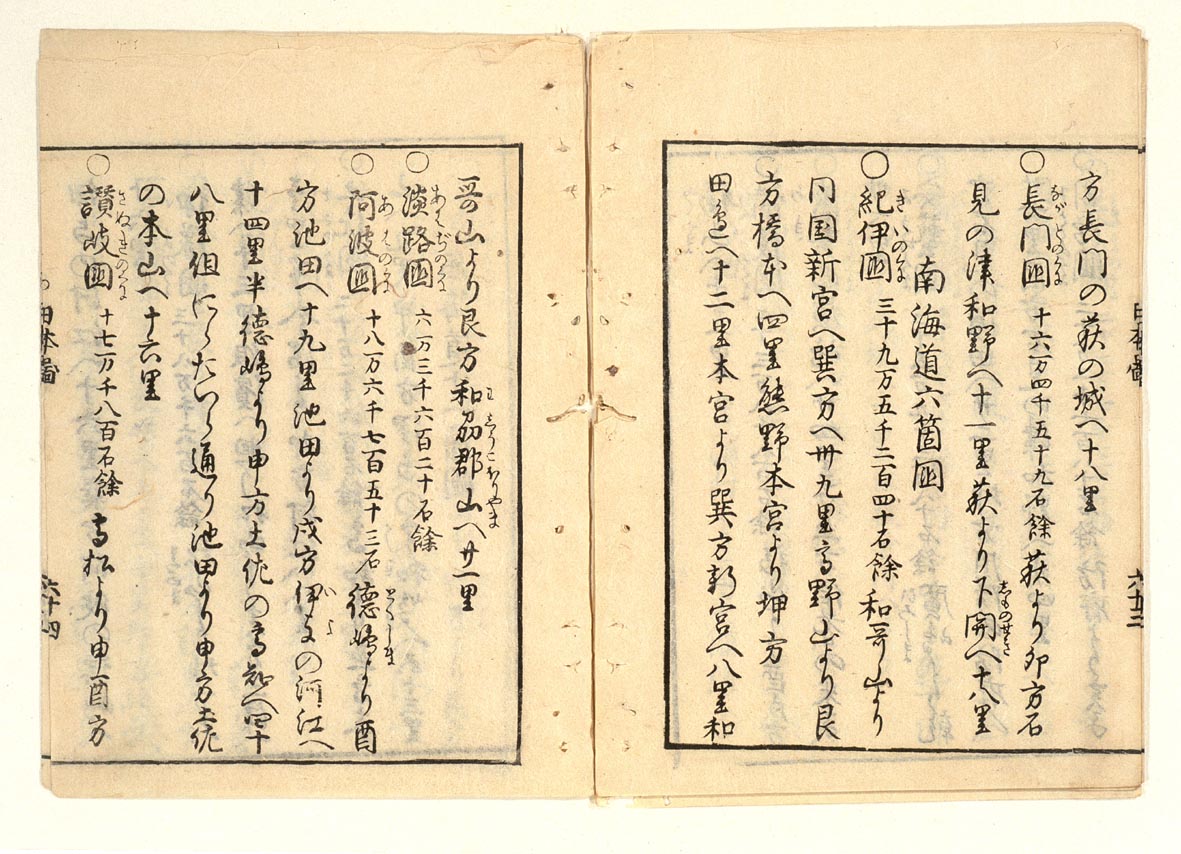 方長門の萩の城へ十八里
長門国 十六万四千五十九石餘 萩より卯方石
ながとのくに
見の津和野へ十一里萩より下関へ十八里
しものせき
南海道六箇国
紀伊国 三十九万五千二百四十石餘 和哥山より
きいのくに
同国新宮へ巽方へ卅九里高野山より艮
方橋本へ四里熊野本宮より坤方
田邉へ十二里本宮より巽方新宮へ八里和
日本圖
六十三
哥山より艮方和刕郡山へ廿一里
わしうこほりやま
淡路国 六万三千六百二十石餘
あはぢのくに
阿波国 十八万六千七百五十三石 徳嶋より酉
あはのくに
とくしま
方池田へ十九里池田より戌方伊与の河江へ
いよ
十四里半徳嶋より申方土佐の高知へ四十
八里但にらたいら通り池田より申方土佐
の本山へ十六里
讃岐国 十七万千八百石餘 高松より申酉方
さぬきのくに
日本圖
六十四